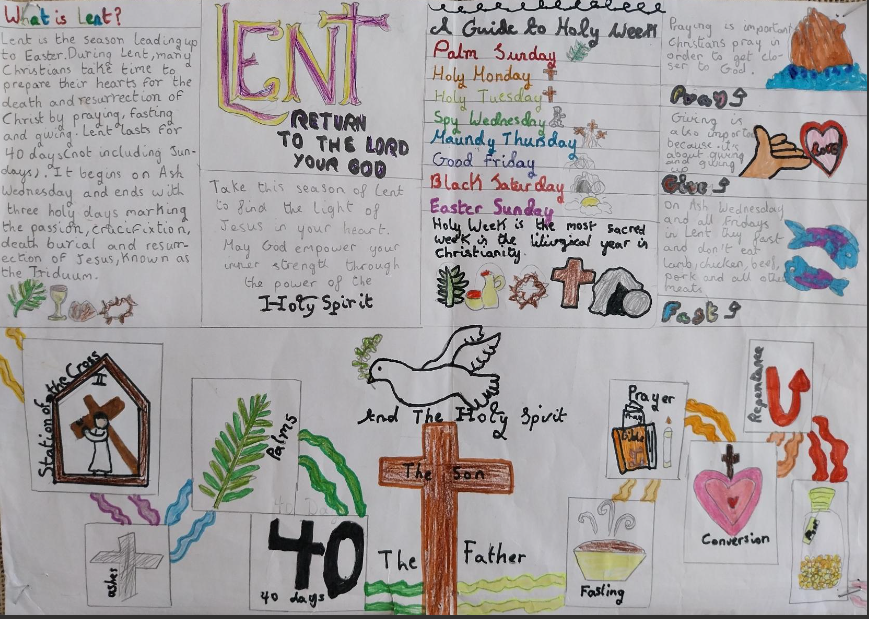 What is Lent?
Lent is the season leading up
to Easter. During Lent, many
Christians take time to
prepare their hearts for the
death and resurrection of
Christ by praying, fasting
and giving. Lent lasts for
40 days (not including Sun-
days). It begins on Ash
Wednesday and ends with
three holy days marking
the passion, crucifixtion,
death burial and resurr-
ection of Jesus, known as
the Triduum.
LENT
RETURN
TO THE LORD
YOUR GOD
Take this season of Lent
to find the light of
Jesus in your heart.
May God empower your
inner strength through
the power of the
Holy Spirit
A Guide to Holy Week
Palm Sunday
Holy Monday
Holy Tuesday
Spy Wednesday
Maundy Thursday
Good Friday
Black Saturday
Easter Sunday
Holy Week is the most sacred
week is the liturgical year in
Christianity.
Praying is important
Christians pray in
order to get clo-
ser to God.
Pray
Giving is
also important
because it's
about giving
and giving
up
Love
Give
On Ash Wednesday
and all Fridays
in Lent they fast
and don't eat
lamb, chicken, beef,
pork and all other
meats
Fast
Station of the Cross
II
Palms
ashes
40
40 days
And The Holy Spirit
The Son
The Father
Prayer
Bible
Fasting
Repentance
Conversion